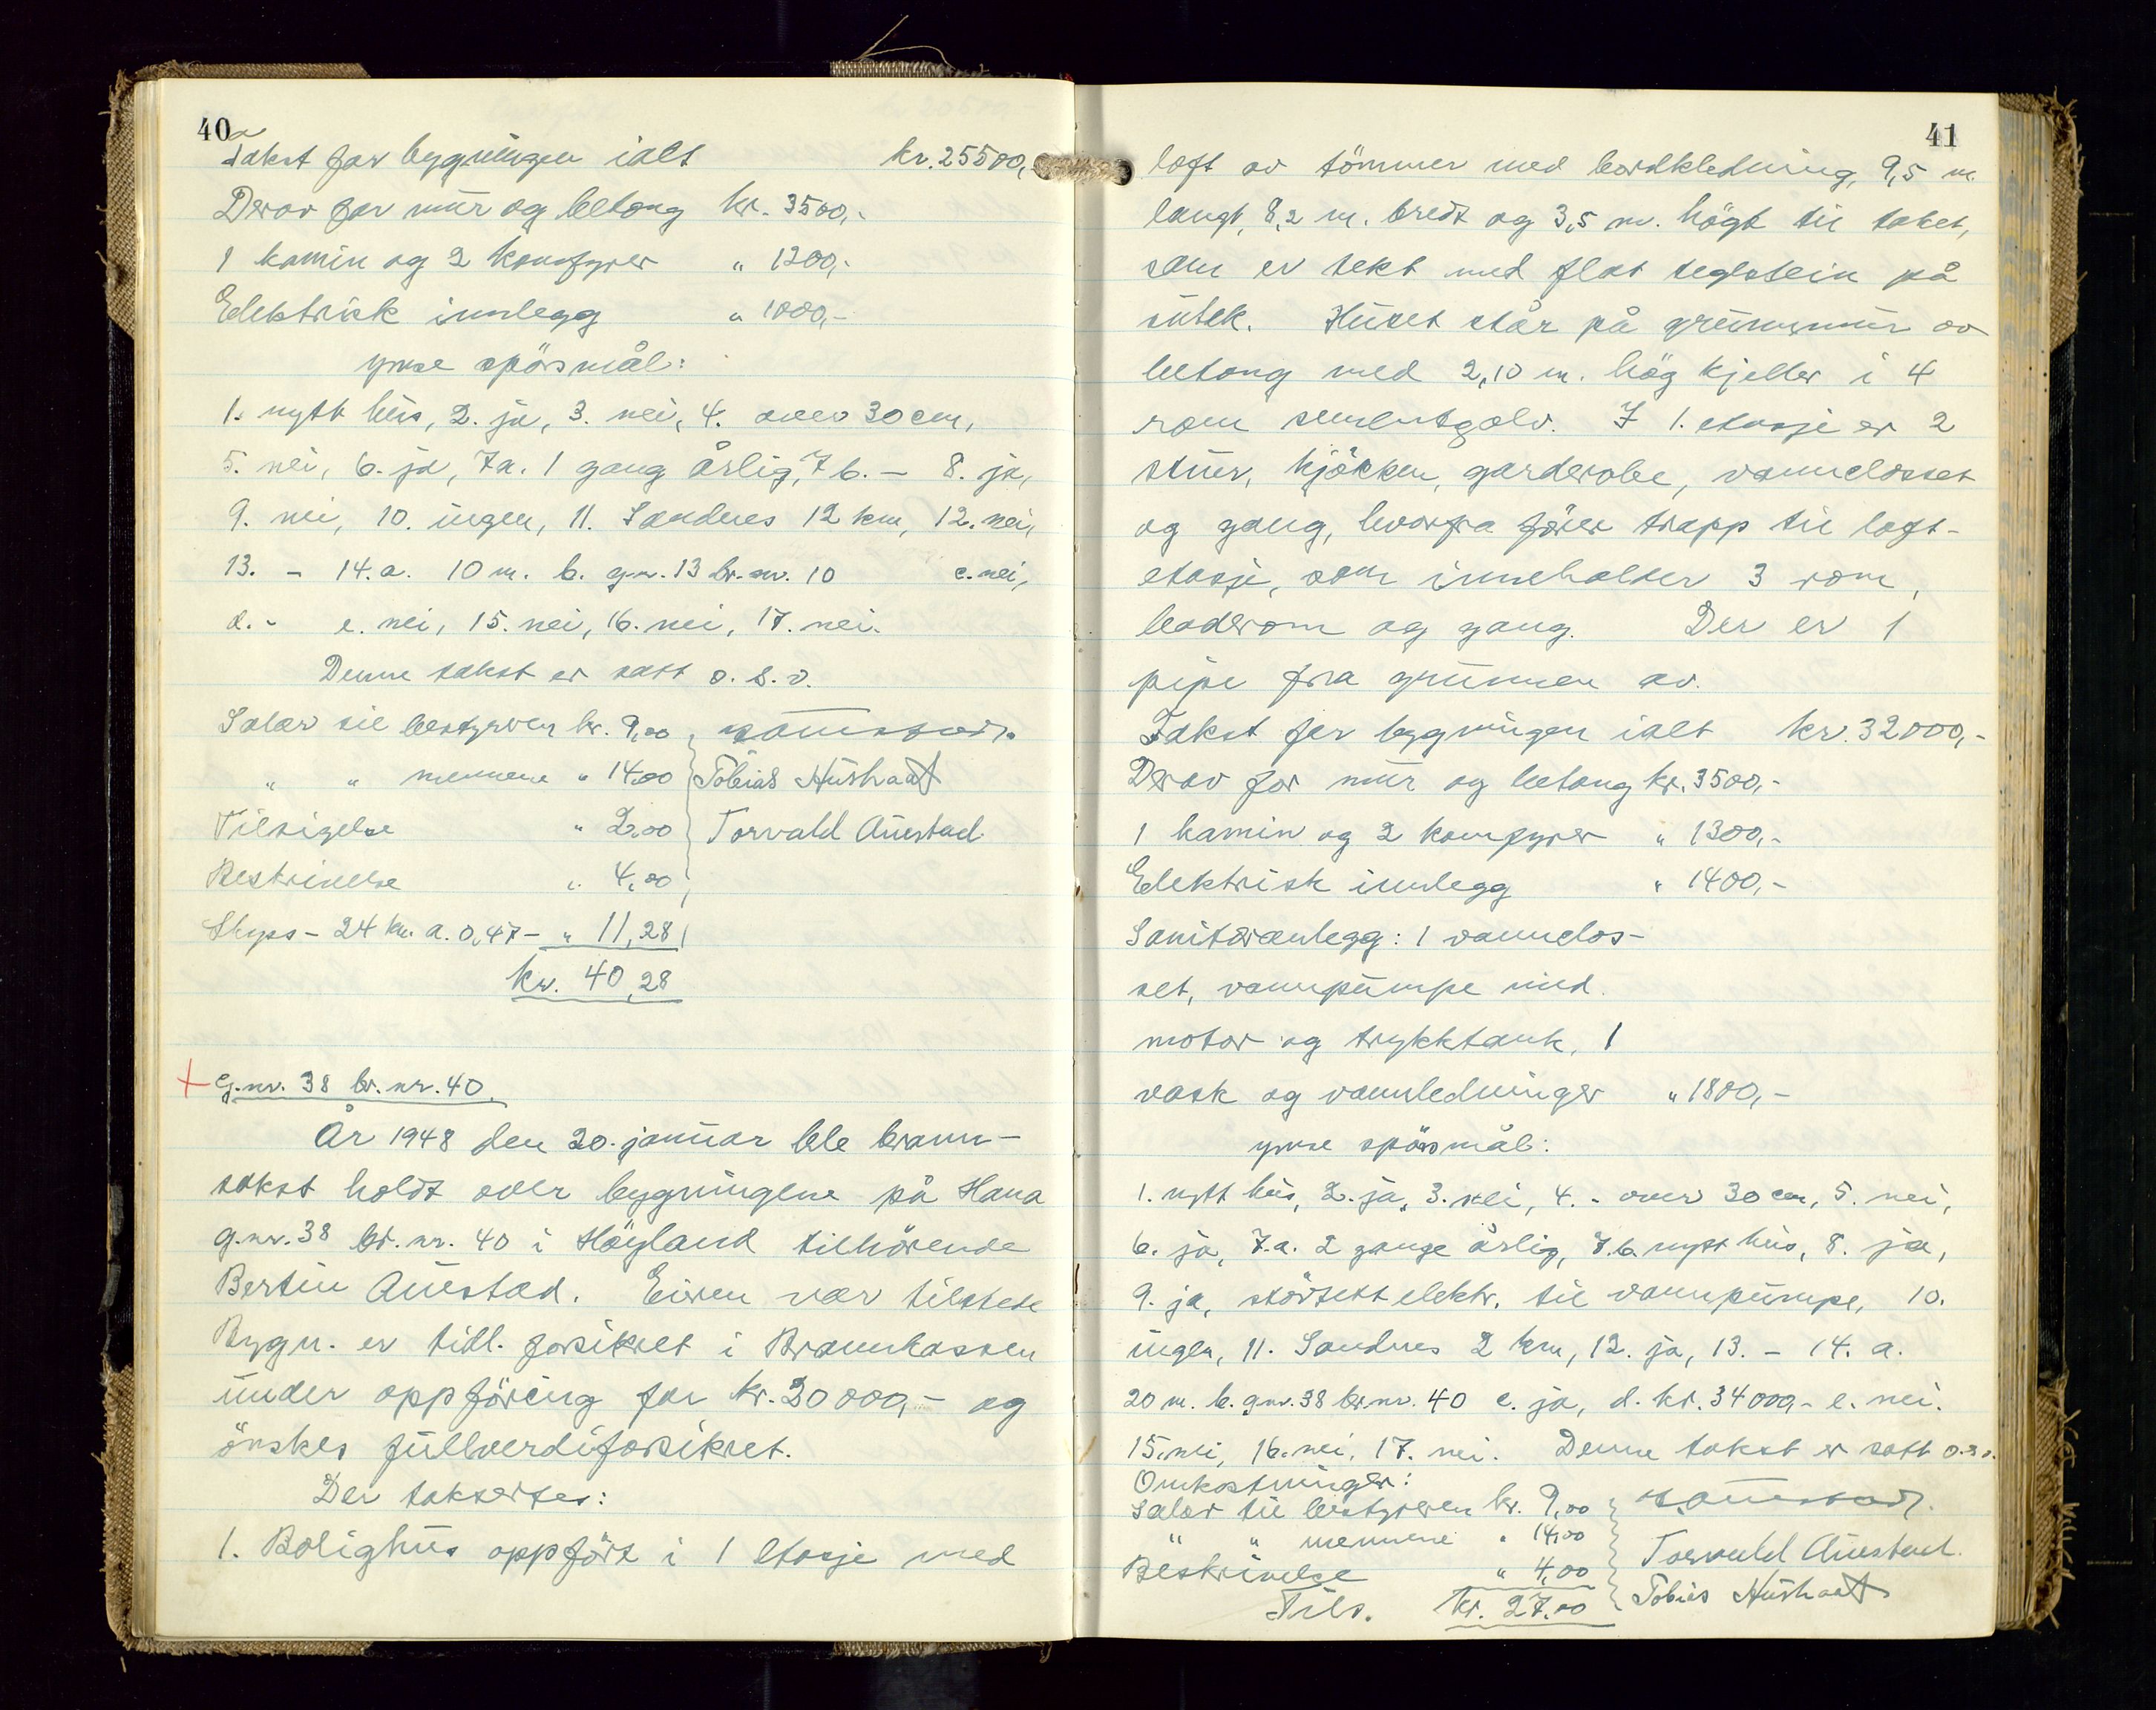 40
Takst for bygningen ialt kr. 25500,-
Derav for mur og betong kr. 3500,-
1 kamin og 2 komfyrer " 1200,-
Elektrisk innlegg " 1000,-
ymse spörsmål:
1. nytt hus, 2. ja, 3. nei, 4. over 30 cm,
5. nei, 6. ja, 7a. 1 gang årlig, 7 b. - 8. ja,
9. nei, 10. ingen, 11. Sandnes 12 km, 12. nei,
13. - 14. a. 10 m. b. g.nr. 13 br.nr. 10 c. nei,
d. - e. nei, 15. nei, 16. nei, 17. nei.
Denne takst er satt o. s. v.
Salær til bestyreren kr. 9,00
" " mennene " 14,00 Tobias Hushaat
Tilsigelse " 2,00 Torvald Auestad
Beskrivelse " 4,00
Skyss - 24 km. a. 0,47 - " 11,28
kr. 40,28
+ G.nr. 38 br. nr. 40.
År 1948 den 20. januar ble brann-
takst holdt over bygningene på Hana
g.nr. 38 br. nr. 40 i Höyland tilhörende
Bertin Auestad. Eiren var tilstede
Bygn. er tidl. forsikret i Brannkassen
under oppföring for kr. 20000,- og
önskes fullverdiforsikret.
Der takseres:
1. Bolighus oppfört i 1 etasje med
41
loft av tömmer med bordkledning, 9,5 m.
langt, 8,2 m. bredt og 3,5 m. högt til taket,
som er tekt med flat teglstein på
sutek. Huset står på grunnmur av
betong med 2,10 m. hög kjeller i 4
rom sementgolv. I 1. etasje er 2
stuer, kjökken, garderobe, vannclosset
og gang, hvorfra förer trapp til loft-
etasje, som inneholder 3 rom,
baderom og gang. Der er 1
pipe fra grunnen av.
Takst for bygningen ialt kr. 32000,-
Derav for mur og betong kr. 3500,-
1 kamin og 2 komfyrer " 1300,-
Elektrisk innlegg " 1400,-
Sanitæranlegg: 1 vannclos-
set, vannpumpe med
motor og trykktank, 1
vask og vannledninger " 1800,-
ymse spörsmål:
1. nytt hus, 2. ja, 3. nei, 4. - over 30 cm, 5. nei,
6. ja, 7.a. 2 gange årlig, 7.b. nytt hus, 8. ja,
9. ja, störtsett elektr. til vannpumpe, 10.
ingen, 11. Sandnes 2 km, 12. ja, 13. - 14. a.
20 m. b. gnr. 38 br.nr. 40 c. ja, d. kr. 34000,- e. nei.
15. nei, 16. nei, 17. nei. Denne takst er satt o.s.v.
Omkostninger:
Salær til bestyreren kr. 9,00
" " mennene " 14,00
Torvald Auestad
Beskrivelse " 4,00
Tobias Hushaat
Tils. kr. 27,00